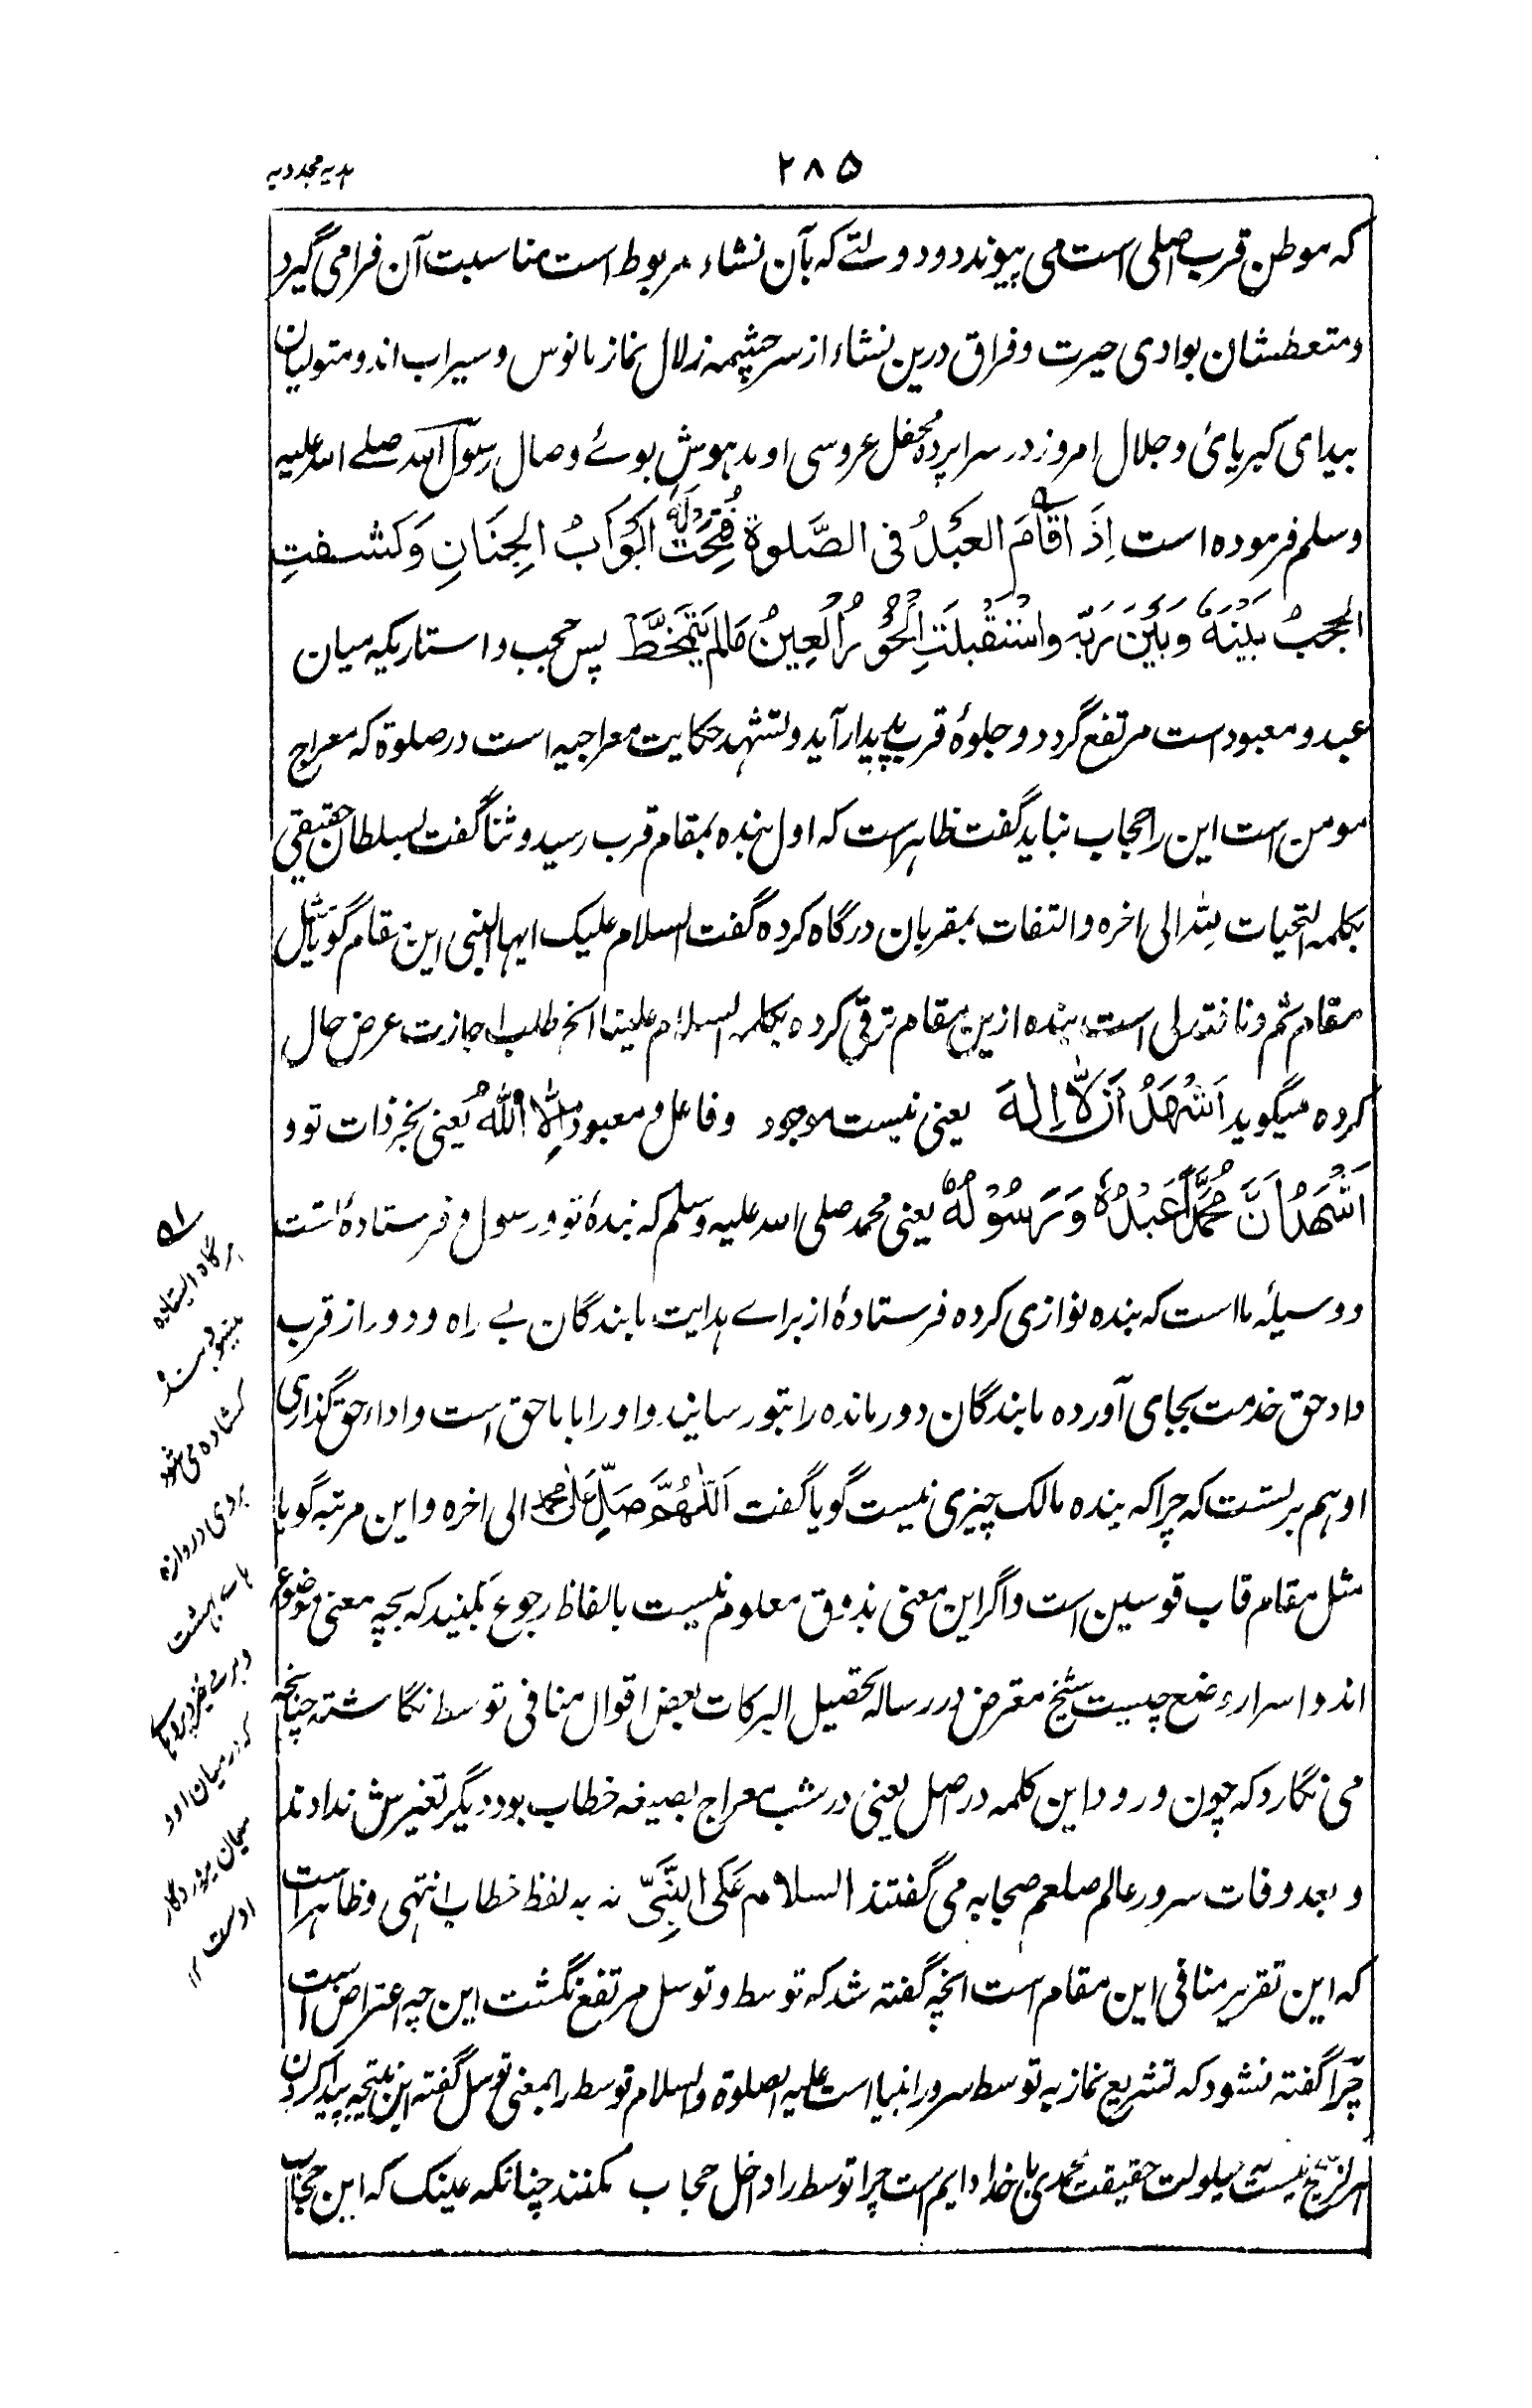 ۲۸۵
ہدیہ مجددیہ
که موطن قرب اصلی است می پیوندد و دولتے که بآن نشاء مربوط است مناسبت آن فرا می گیرد
و متعطشان بوادی حیرت و فراق درین نشاء از سرچشمه زلال نماز مانوس و سیراب اند و متولیان
بیدای کبریائی و جلال امروز در سراپرده محفل عروسی او مدهوش بوئے وصال رسول الله صلے الله علیه
وسلم فرموده است اِذَ اقَامَ العَبْدُ فی الصَّلوة فُتِحَتْ لَهٗ اَبْوَابُ الجِنَانِ وَکشفتِ
الحجبُ بَیْنَهٗ وَبَیْنَ رَبِّه واسْتَقْبلَتِ الْحُوْرُ الْعِیْنُ مَالم یَتَمَخَّطْ پس حجب و استاریکه میان
عبد و معبود است مرتفع گردد و جلوهٔ قرب پدیدار آید و تشهد حکایت معراجیه است در صلوة که معراج
مومن است این را حجاب نباید گفت ظاهر است که اول بنده بمقام قرب رسید و ثنا گفت بسلطان حقیقی
بکلمه التحیات لله الی اخره و التفات بمقربان درگاه کرده گفت السلام علیک ایها النبی این مقام گویا مثل
مقام ثم دنا فتدلی است بنده ازین مقام ترقی کرده بکلمه السلام علینا الخ طلب اجازت عرض حال
کرده میگوید اَشْهَدُ اَنْ لَّا اِلهَ یعنی نیست موجود و فاعل و معبود اِلَّا اللهُ یعنی بجز ذات تو و
اَشْهَدُ اَنَّ مُحَمَّدًا عَبْدُهٗ وَرَسُوْلُهٗ یعنی محمد صلی الله علیه وسلم که بندهٔ تو و رسول و فرستادهٔ تست
و وسیلهٔ ما است که بنده نوازی کرده فرستادهٔ از براے هدایت ما بندگان بے راه و دور از قرب
داد حق خدمت بجای آورده ما بندگان دور مانده را بتو رسانید و او را با ما حق است و اداء حق گذاری
او هم بر تست که چرا که بنده مالک چیزی نیست گویا گفت اَللّٰهُمَّ صَلِّ عَلٰی محمد الی اخره و این مرتبه گویا
مثل مقام قاب قوسین است و اگر این معنی بذوق معلوم نیست بالفاظ رجوع بکنید که بچه معنی موضوع
اند و اسرار وضع چیست شیخ معترض در رساله تحصیل البرکات بعض اقوال منافی توسط نگاشته چنانچه
می نگارد که چون ورود این کلمه در اصل یعنی در شب معراج بصیغه خطاب بود دیگر تغیرش ندادند
و بعد وفات سرور عالم صلعم صحابه می گفتند السلام عَلَی النَّبِیِّ نه به لفظ خطاب انتهی و ظاهر است
که این تقریر منافی این مقام است انچه گفته شد که توسط و توسل مرتفع نگشت این چه اعتراض است
چرا گفته نشود که تشریع نماز به توسط سرور انبیا است علیه الصلوة والسلام توسط را بمعنی توسل گفته این نتیجه پیدا کردن
نیست حیلولت حقیقت محمدی با خدا دایم است چرا توسط را داخل حجاب مکنند چنانکه عینک که این حجاب
هرگاه ایستاده
میشود بنده
کشاده می شود
بروی دروازه
هاے بهشت
که درمیان او و
میان پروردگار
اوست ۱۲